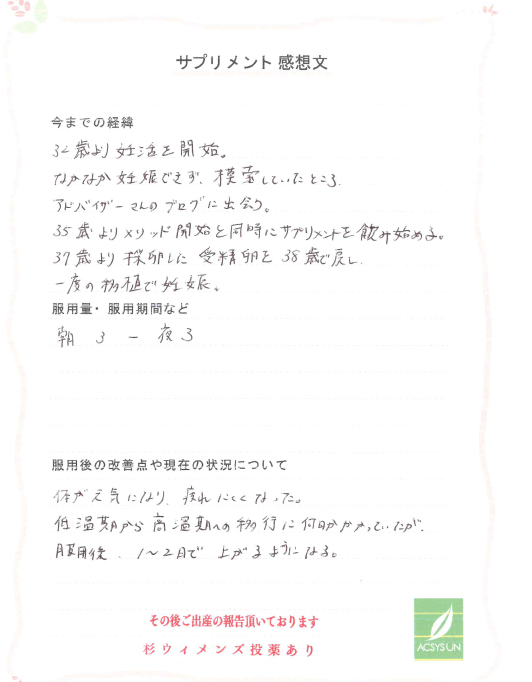 サプリメント 感想文
今までの経緯
34歳より妊活を開始。
なかなか妊娠できず、模索していたところ、
アドバイザーさんのブログに出会う。
35歳よりメソッド開始と同時にサプリメントを飲み始める。
37歳より採卵した受精卵を38歳で戻し
一度の移植で妊娠。
服用量・服用期間など
朝 3 ー 夜 3
服用後の改善点や現在の状況について
体が元気になり、疲れにくくなった。
低温期から高温期への移行に何日かかかっていたが、
服用後、1〜2日で上がるようになる。
その後ご出産の報告頂いております
杉ウィメンズ投薬あり
ACSYSUN